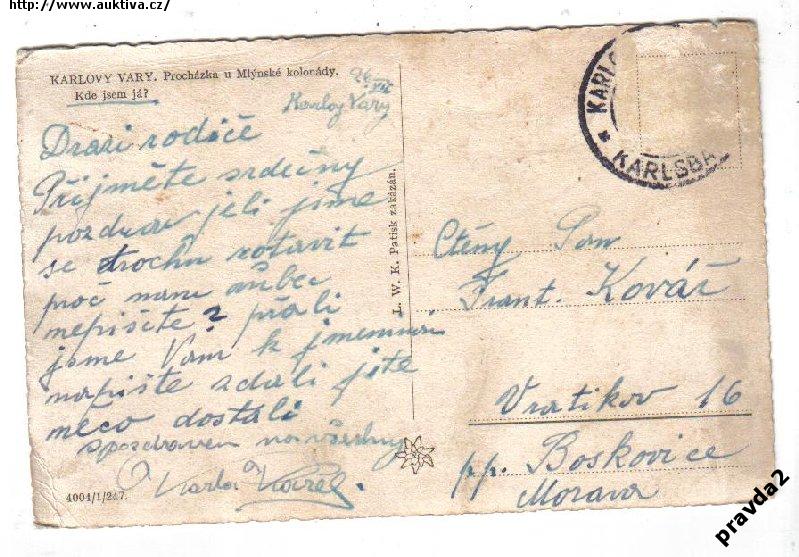 http://www.auktiva.cz/
KARLOVY VARY. Procházka u Mlýnské kolonády.
Kde jsem já?
26
VIII
Karlovy Vary
Drazí rodiče
Přijměte srdečný
pozdrav jeli jsme
se trochu zotavit
proč nám vůbec
nepišete? přáli
jsme Vám k jmeninám
napište zdali jste
něco dostali
s pozdravem na všechny
Karla Karel.
4004/1/247.
L. W. K. Patisk zakázán.
KARLO
* KARLSBA
Ctěný Pan
Frant. Kovář
Vratíkov 16
p.p. Boskovice
Morava
pravda2